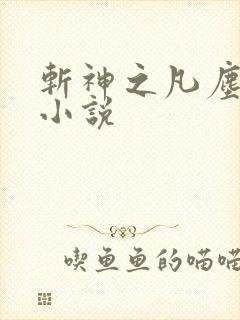 斬神之凡塵
小説
喫魚魚的喵喵